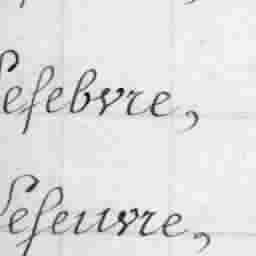 Lefebvre,
Lefeuvre,